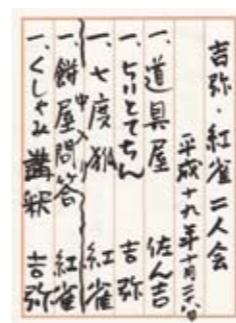 吉弥・紅雀二人会
平成十九年十月二六日
一、道具屋 佐ん吉
一、ちりとてちん 吉弥
一、七度狐 紅雀
中入り
一、餅屋問答 紅雀
一、くしゃみ講釈 吉弥